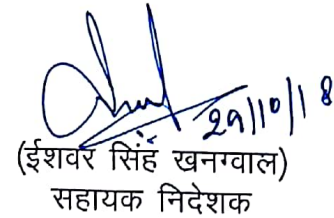 29/10/18
(ईशवर सिंह खनगवाल)
सहायक निदेशक